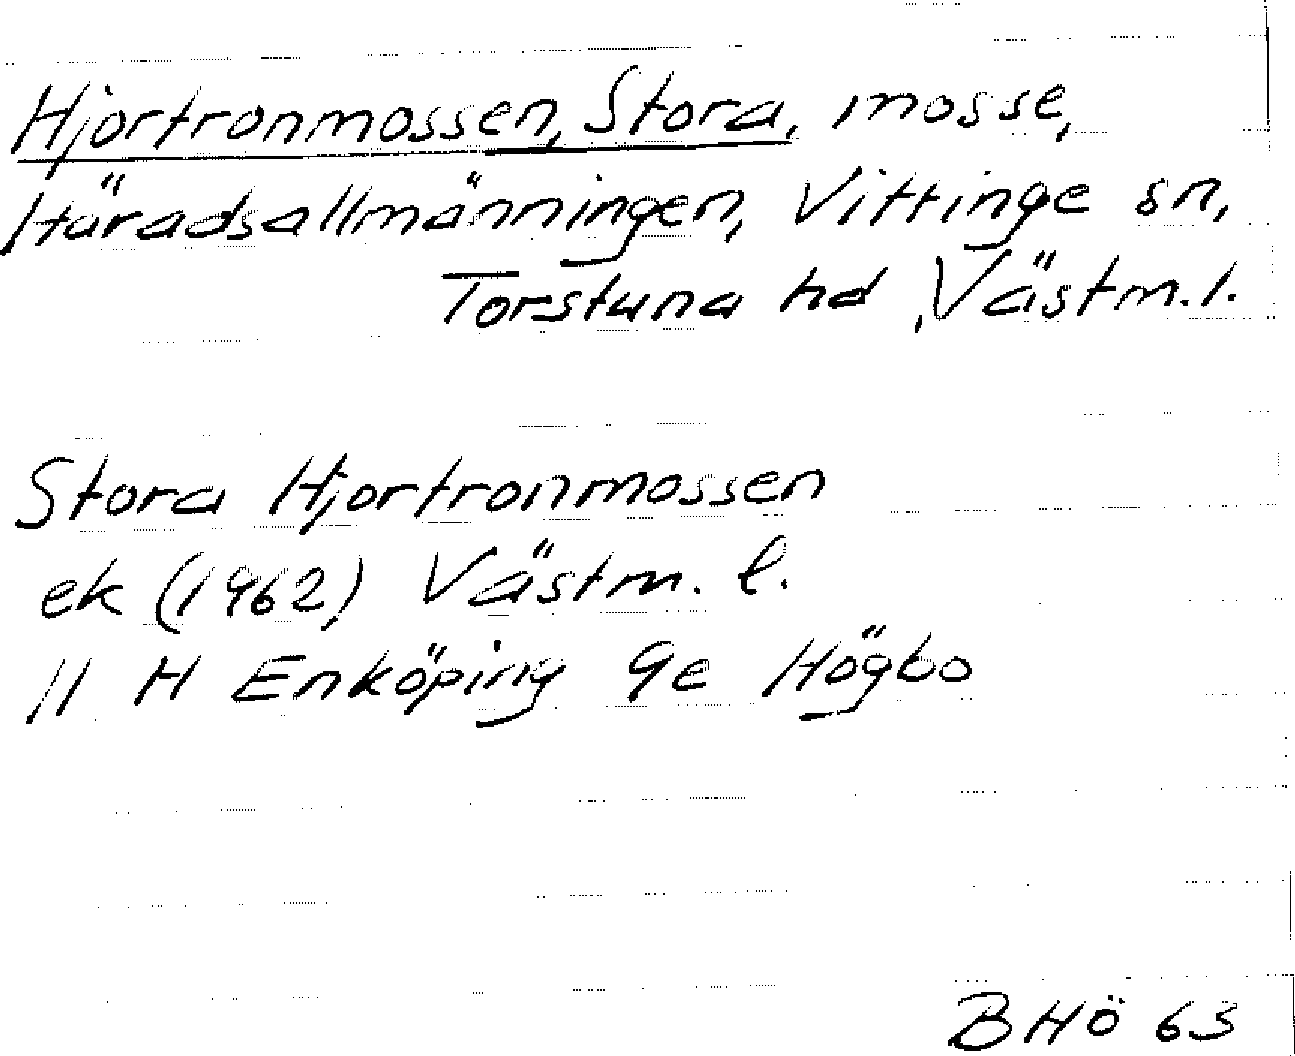 Hjortronmossen, Stora, mosse,
Häradsallmänningen, Vittinge sn,
Torstuna hd, Västm.l.
Stora Hjortronmossen
ek (1962) Västm. l.
11 H Enköping 9e Högbo
BHÖ 63